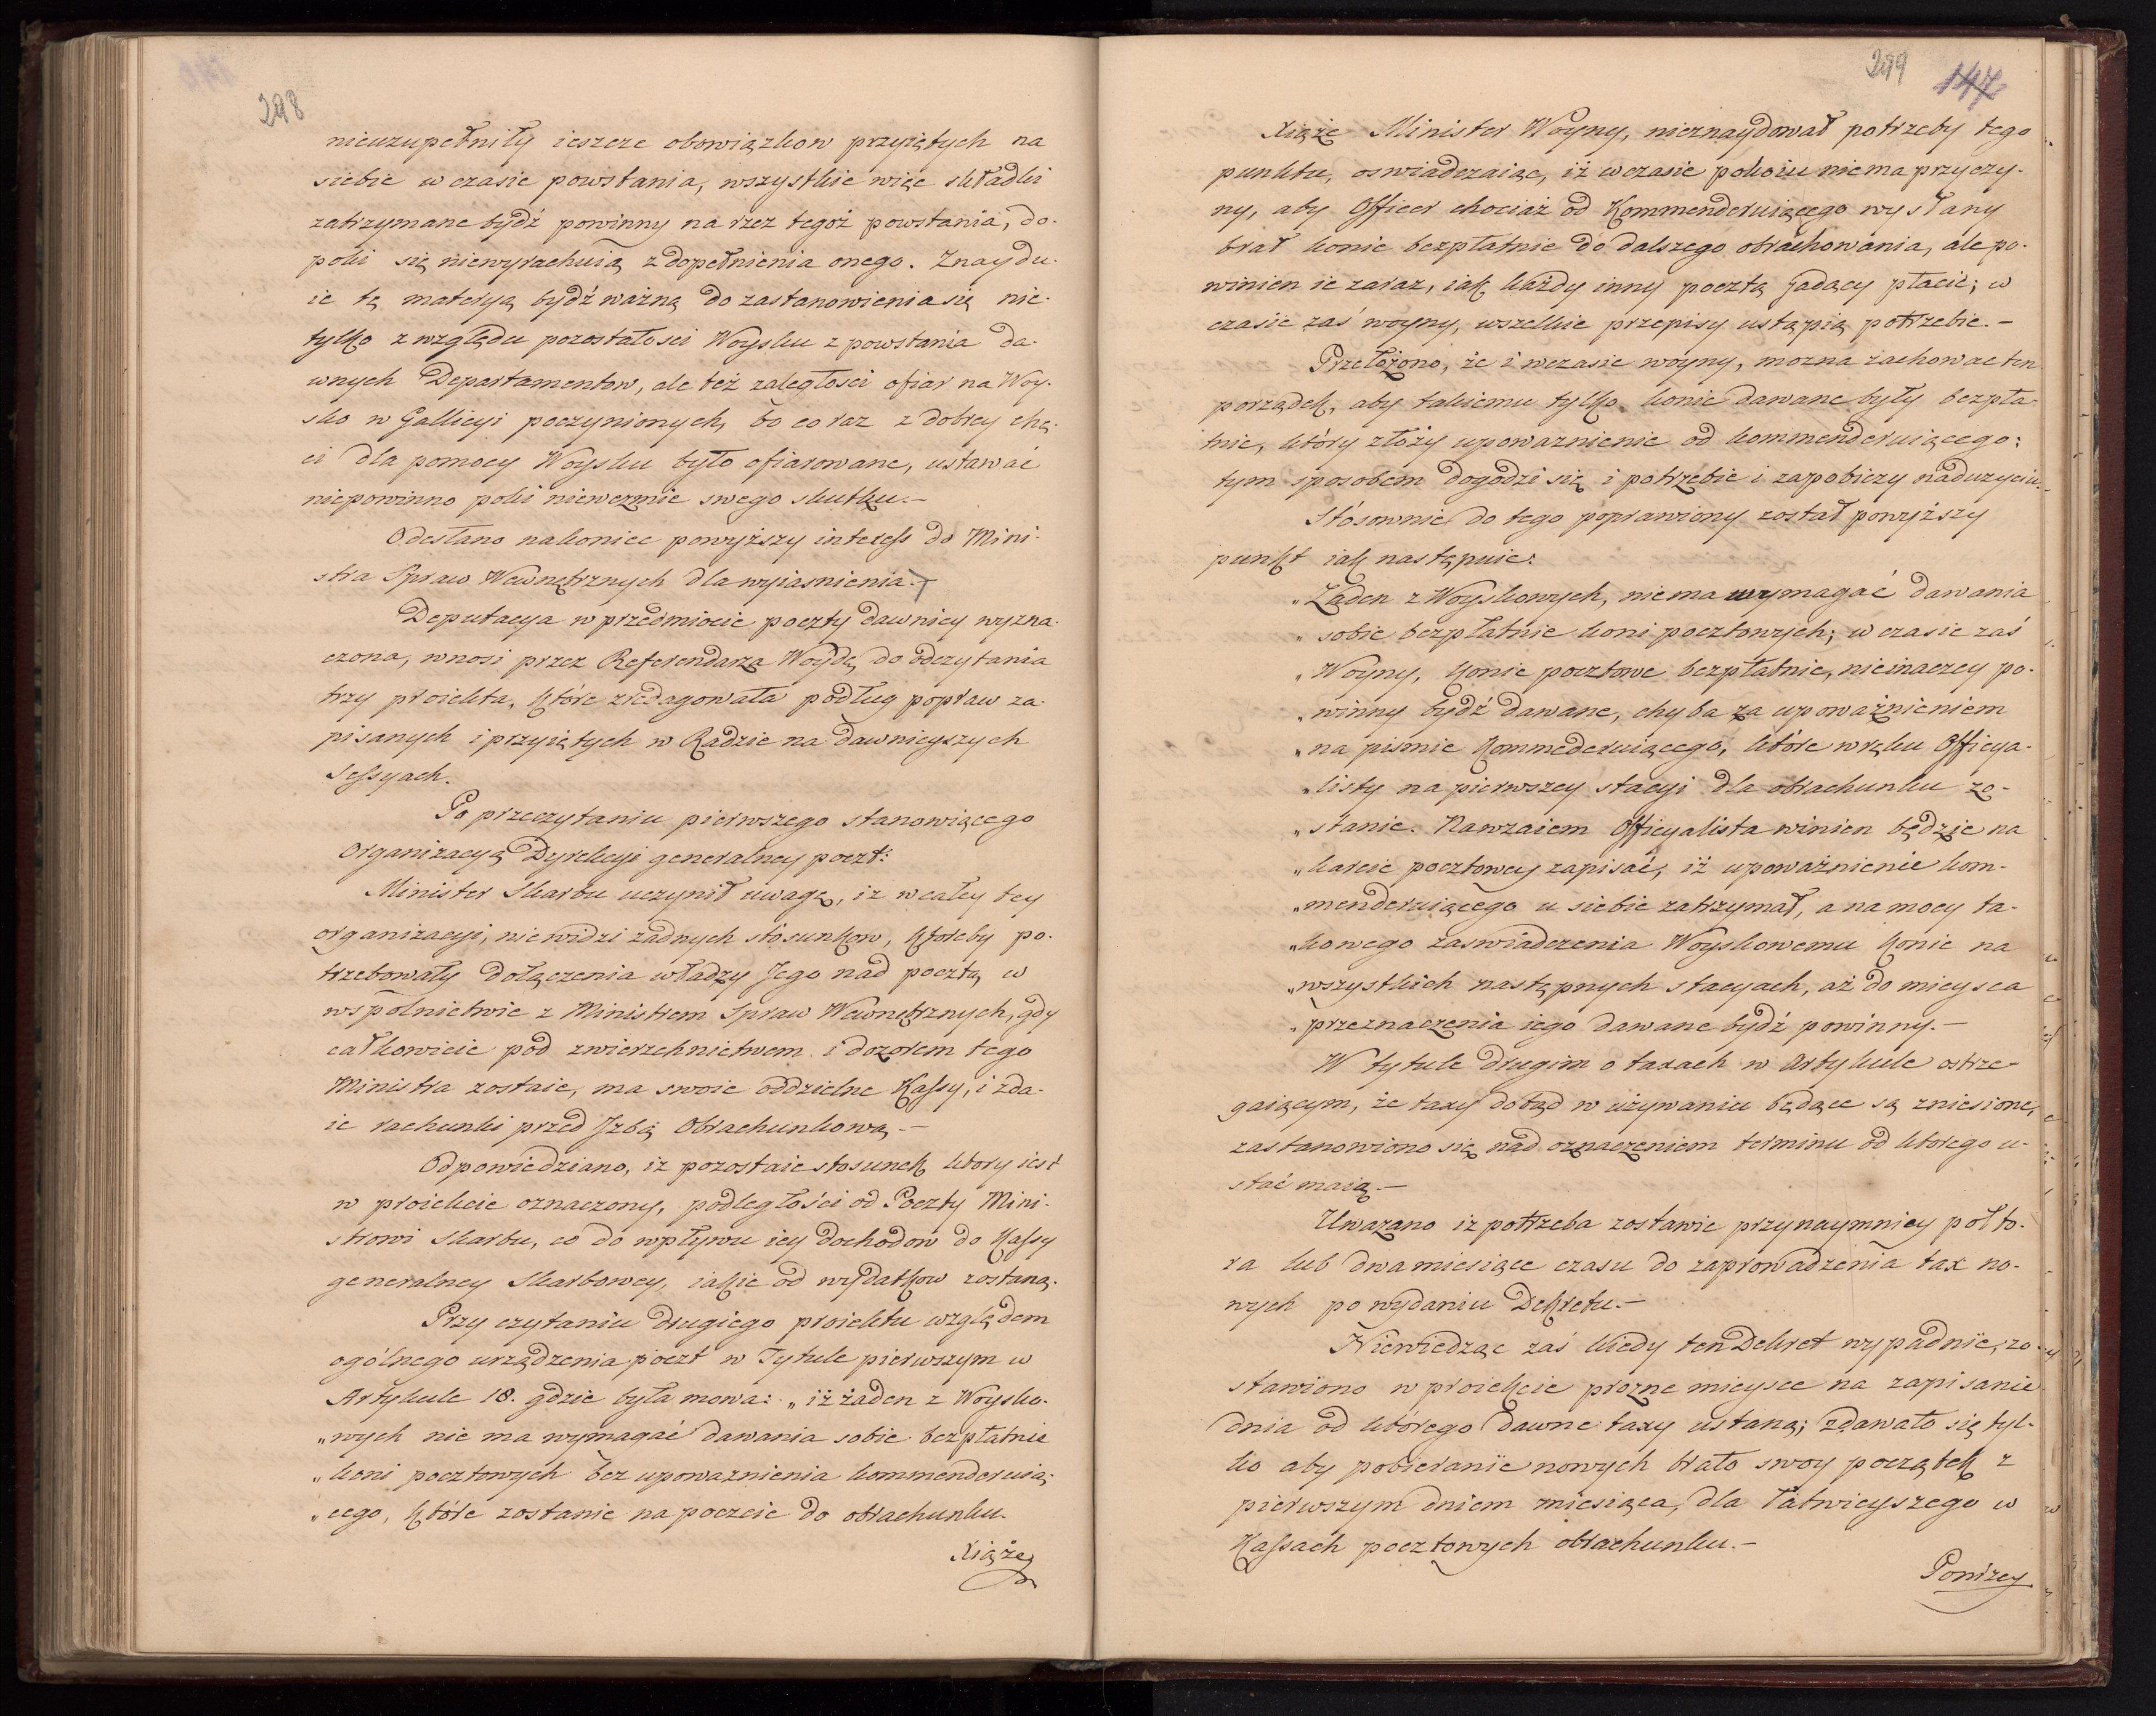 298
nieuzupełniły ieszcze obowiązkow przyiętych na
siebie w czasie powstania, wszystkie więc składki
zatrzymane bydź powinny na rzez tegoż powstania, do-
poki się niewyrachuią z dopełnienia onego. Znaydu-
ie tę materyą bydź ważną do zastanowienia się nie-
tylko z względu pozostałosci Woysku z powstania da-
wnych Departamentow, ale też zaległosci ofiar na Woy-
sko w Gallicyi poczynionych, bo co raz z dobrey chę-
ci dla pomocy Woysku było ofiarowane, ustawać
niepowinno poki niewezmie swego skutku.—
Odesłano nakoniec powyższy interess do Mini-
stra Spraw Wewnętrznych dla wyiasnienia.—
Deputacya w przedmiocie poczty dawniey wyzna-
czona, wnosi przez Referendarza Woydę do odczytania
trzy proiekta, które zredagowała podług popraw za-
pisanych i przyiętych w Radzie na dawnieyszych
Sessyach.
Po przeczytaniu pierwszego stanowiącego
Organizacyą Dyrekcyi generalney poczt:
Minister Skarbu uczynił uwagę, iz w całey tey
organizacyi, nie widzi zadnych stosunkow, ktoreby po-
trzebowały dołączenia władzy Jego nad pocztą w
wspolnictwie z Ministrem Spraw Wewnętrznych, gdy
całkowicie pod zwierzchnictwem i dozorem tego
Ministra zostaie, ma swoie oddzielne Kassy, i zda-
ie rachunki przed Izbą Obrachunkową.—
Odpowiedziano, iz pozostaie stosunek ktory iest
w proiekcie oznaczony, podległości od Poczty Mini-
strowi Skarbu, co do wpływu iey dochodow do Kassy
generalney Skarbowey, iakie od wydatkow zostaną.
Przy czytaniu drugiego proiektu względem
ogólnego urządzenia poczt w Tytule pierwszym w
Artykule 18. gdzie była mowa: „iż żaden z Woysko-
„wych nie ma wymagać dawania sobie bezpłatnie
„koni pocztowych bez upowaznienia kommenderuią-
„cego, które zostanie na poczcie do obrachunku.
Xiąże
299 147
Xiąże Minister Woyny, nieznaydował potrzeby tego
punktu, oswiadczaiąc, iż w czasie pokoiu niema przyczy-
ny, aby Officer chociaż od Kommenderuiącego wysłany
brał konie bezpłatnie do dalszego obrachowania, ale po-
winien ie zaraz, iak każdy inny pocztą jadący płacić; w
czasie zaś woyny, wszelkie przepisy ustąpią potrzebie.—
Przełożono, że i w czasie woyny, mozna zachować ten
porządek, aby takiemu tylko konie dawane były bezpła-
tnie, który złoży upowaznienie od kommenderuiącego:
tym sposobem dogodzi się i potrzebie i zapobieży naduzyciu.—
Stósownie do tego poprawiony został powyższy
punkt iak następuie:
„Żaden z Woyskowych, niema wymagać dawania
„sobie bezpłatnie koni pocztowych; w czasie zaś
„Woyny, konie pocztowe bezpłatnie, nieinaczey po-
„winny bydź dawane, chyba za upoważnieniem
„na pismie Kommederuiącego, które w ręku Officya-
„listy na pierwszey stacyi dla obrachunku zo-
„stanie. Nawzaiem Officyalista winien będzie na
„karcie pocztowey zapisać, iż upoważnienie kom-
„menderuiącego u siebie zatrzymał, a na mocy ta-
„kowego zaswiadczenia Woyskowemu konie na
„wszystkich następnych stacyach, aż do mieysca
„przeznaczenia iego dawane bydź powinny.—
W tytule drugim o taxach w Artykule ostrze-
gaiącym, że taxy dotąd w używaniu będące są zniesione,
zastanowiono się nad oznaczeniem terminu od ktorego u-
stać maią.—
Uwazano iz potrzeba zostawić przynaymniey połto-
ra lub dwa miesiące czasu do zaprowadzenia tax no-
wych po wydaniu Dekretu.—
Niewiedząc zaś kiedy ten Dekret wypadnie, zo-
stawiono w proiekcie prozne mieysce na zapisanie
dnia od którego dawne taxy ustaną; zdawało się tyl-
ko aby pobieranie nowych brało swoy początek z
pierwszym dniem miesiąca, dla łatwieyszego w
Kassach pocztowych obrachunku.—
Ponizey